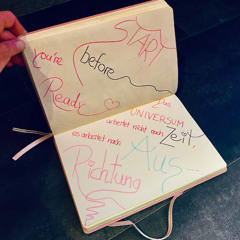 START
before
you're
Ready
Das
UNIVERSUM
arbeitet nicht nach
Zeit,
es arbeitet nach
Aus-
Richtung